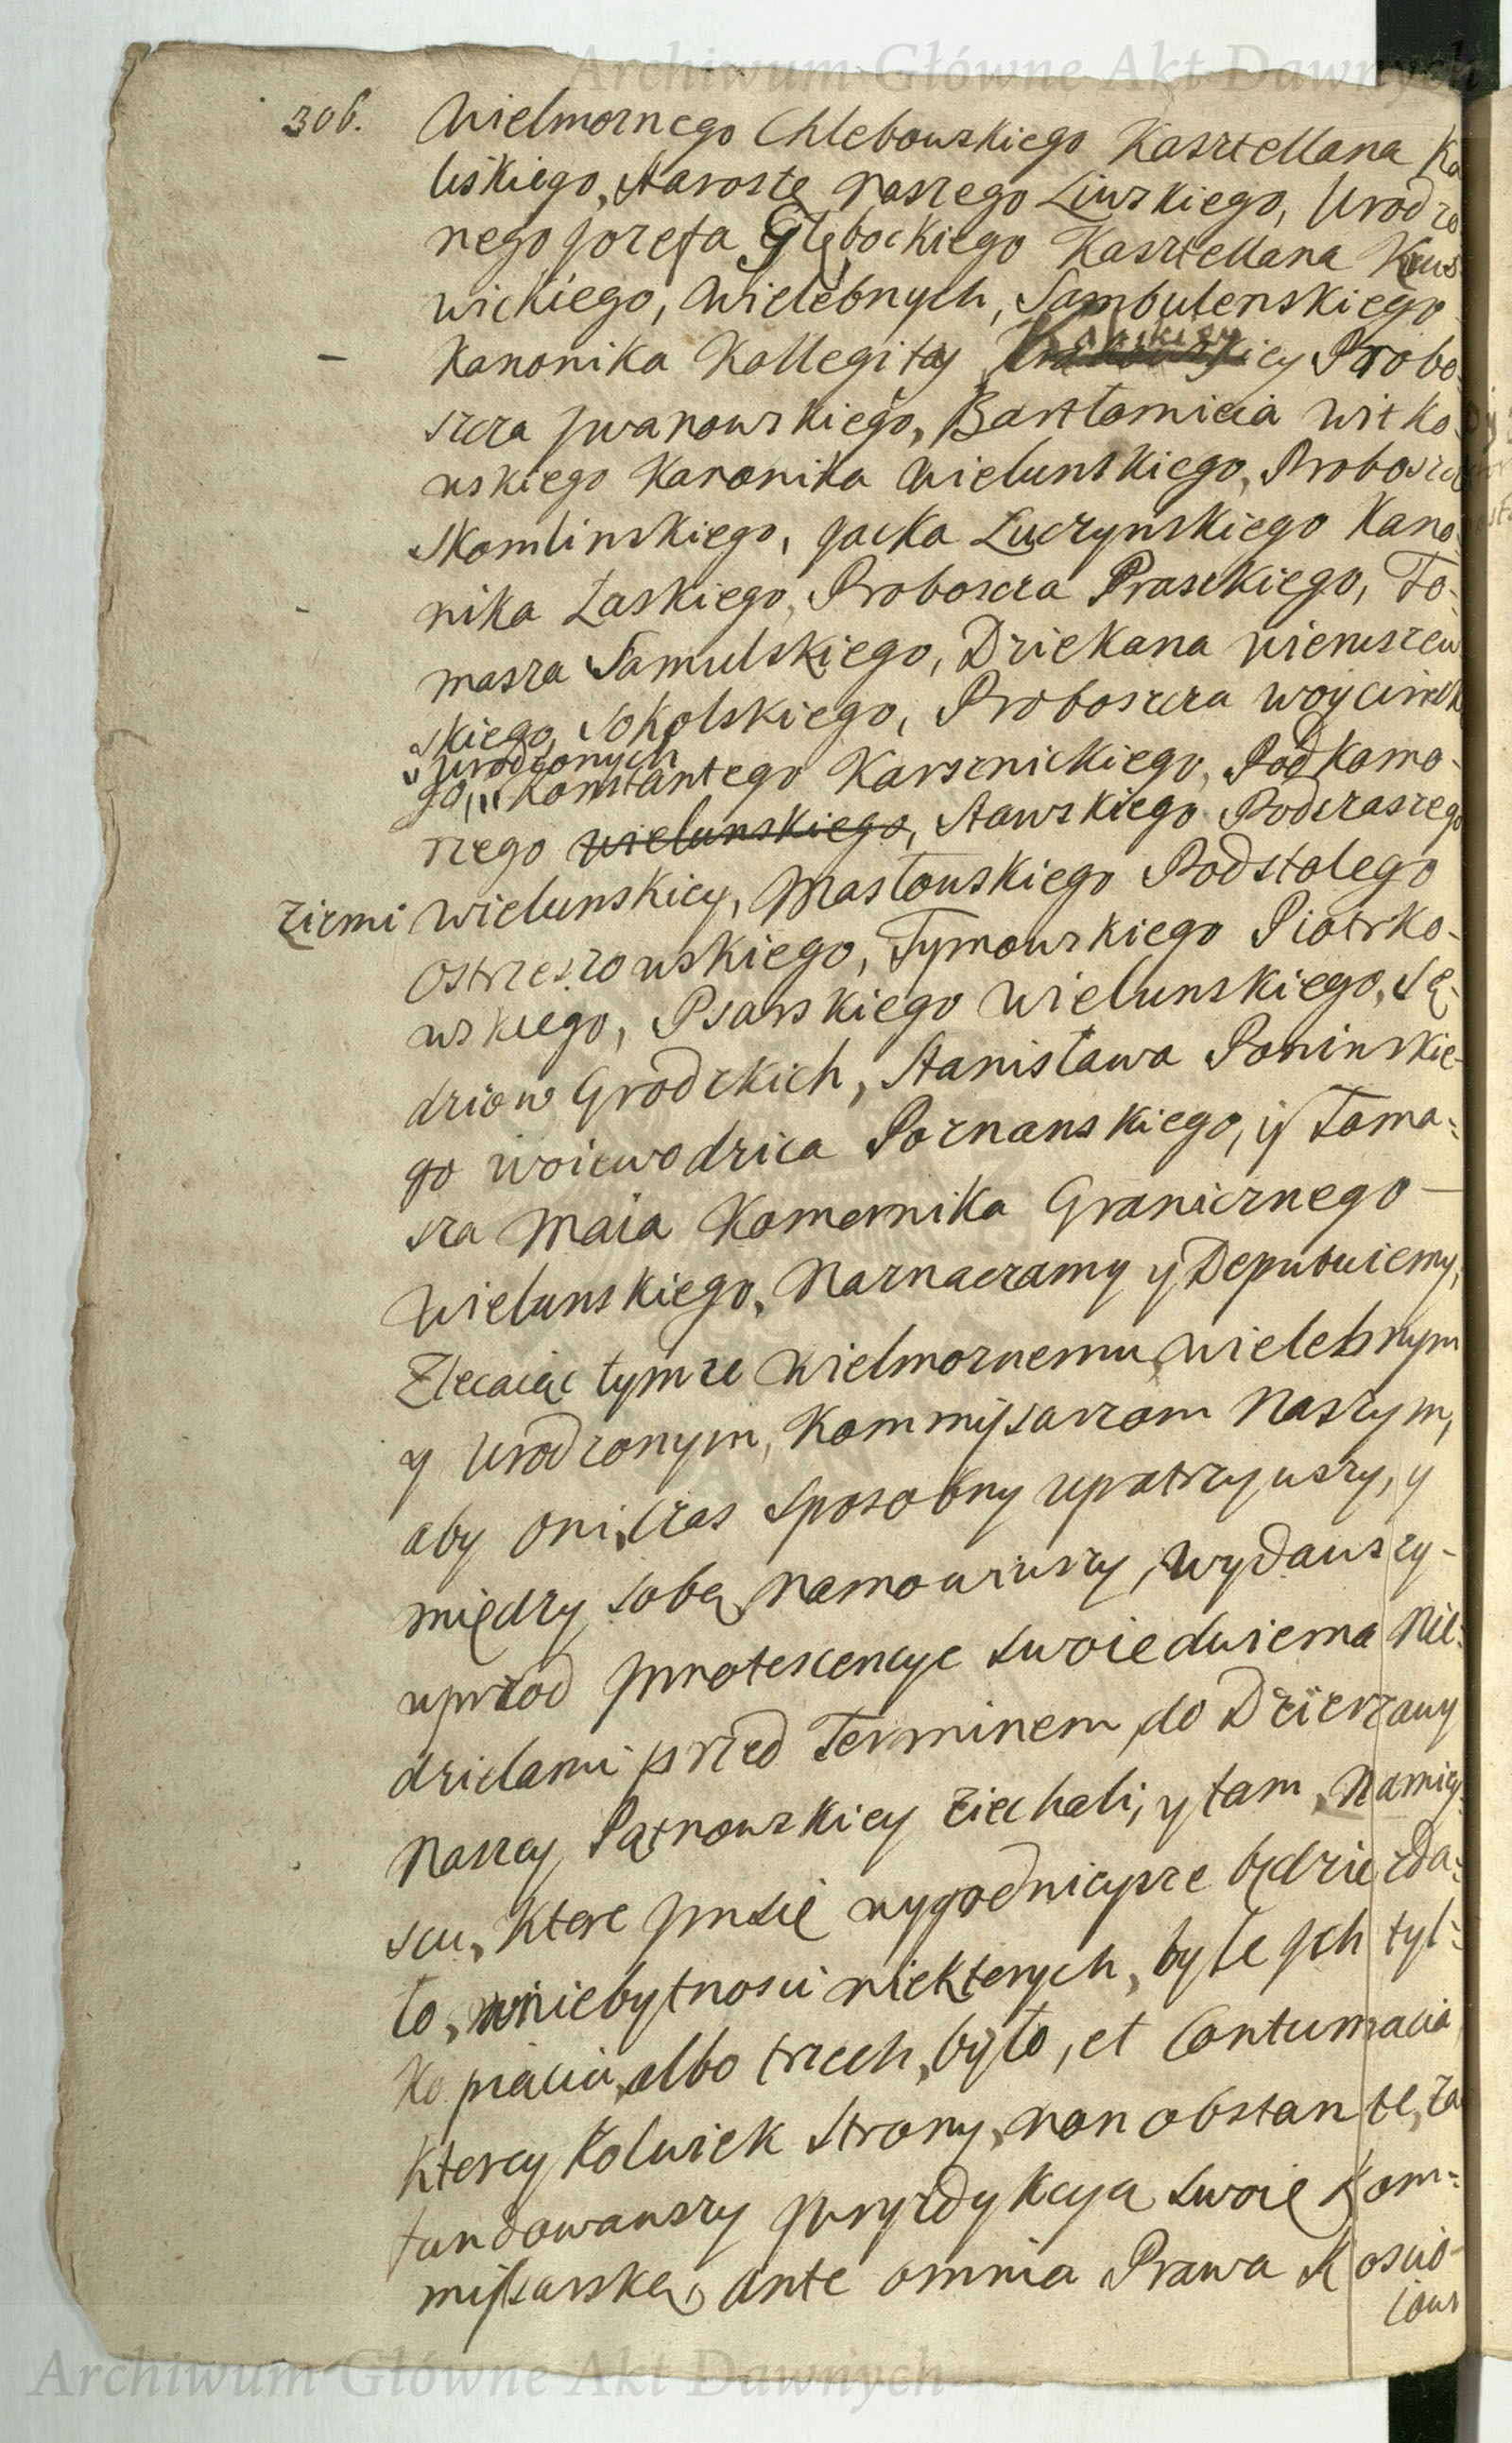 Archiwum Główne Akt Dawnych
306. Wielmoznego Chlebowskiego Kasztellana Ka
liskiego, Staroste naszego Liwskiego, Urodzo
nego Jozefa Głębockiego Kasztellana Krus
wickiego, Wielebnych, Sambulenskiego
Kanonika Kollegiaty Kaliskiey Probo-
szcza Jwanowskiego, Bartłomieia Witko-
wskiego Kanonika Wielunskiego, Proboszcza
Skomlinskiego, Jacka Luczynskiego Kano-
nika Łaskiego, Proboszcza Praszkiego, To-
masza Samulskiego, Dziekana Wieruszew
skiego, Sokolskiego, Proboszcza Woycinsk
Urodzonych
go, Konstantego Karsznickiego, Podkomo-
rzego wielunskiego, Stawskiego Podczaszego
Ziemi Wielunskiey, Masłowskiego Podstolego
Ostrzeszowskiego, Tymowskiego Piotrko-
wskiego, Psarskiego Wielunskiego, Sę-
dziow Grodzkich, Stanisława Poninskie-
go Woiewodzica Poznanskiego, y Toma-
sza Maia Komornika Granicznego
Wielunskiego, Naznaczamy y Deputuiemy,
Zlecaiąc tymze Wielmoznemu, Wielebnym
y Urodzonym, Kommissarzom Naszym,
aby oni, czas sposobny upatrzywszy, y
między sobą namowiwszy, wydawszy-
wprzod Jnnotescencye swoie dwiema Nie-
dzielami przed Terminem, do Dzierzawy
Naszey Pątnowskiey ziechali, y tam, Namiey
scu, ktore Jmsię wygodnieysze będzie zda-
ło, w niebytnosci niektorych, byle Jch tyl-
ko piąciu, albo trzech, było, et Contumacia
ktorey kolwiek Strony, non obstante, za
fundowawszy Juryzdykcyą swoię Kom-
missarską, ante omnia Prawa Koscio-
łow
Archiwum Główne Akt Dawnych